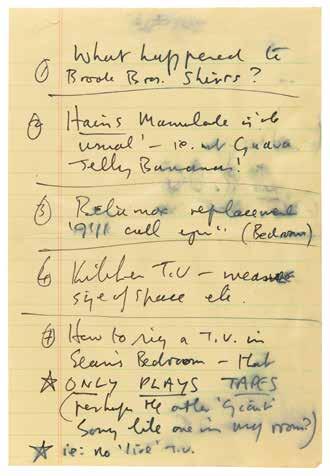 ① What happened to
Brook Bros. Shirts?
② Hains Mamulade is 'the
usual' – ie. not Guava
Jelly Bananas!
Betamax replacement
call (Bedroom)
Kitchen T.V – measure
size of space etc.
⑦ How to rig a T.V. in
Sean's Bedroom – that
☆ ONLY PLAYS TAPES
(perhaps the other 'Giant'
Sony like one in my room?)
☆ ie: no 'live' T.V.